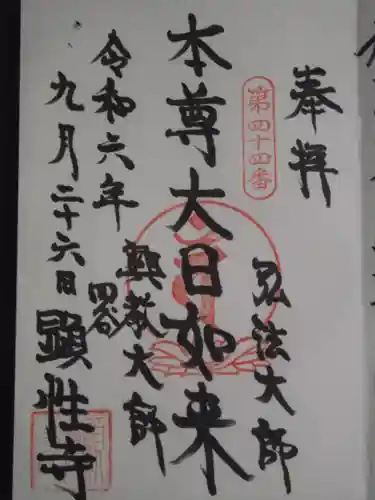 奉拝
第四十四番
弘法大師
本尊大日如来
興教大師
四谷
令和六年
九月二十六日
顕性寺